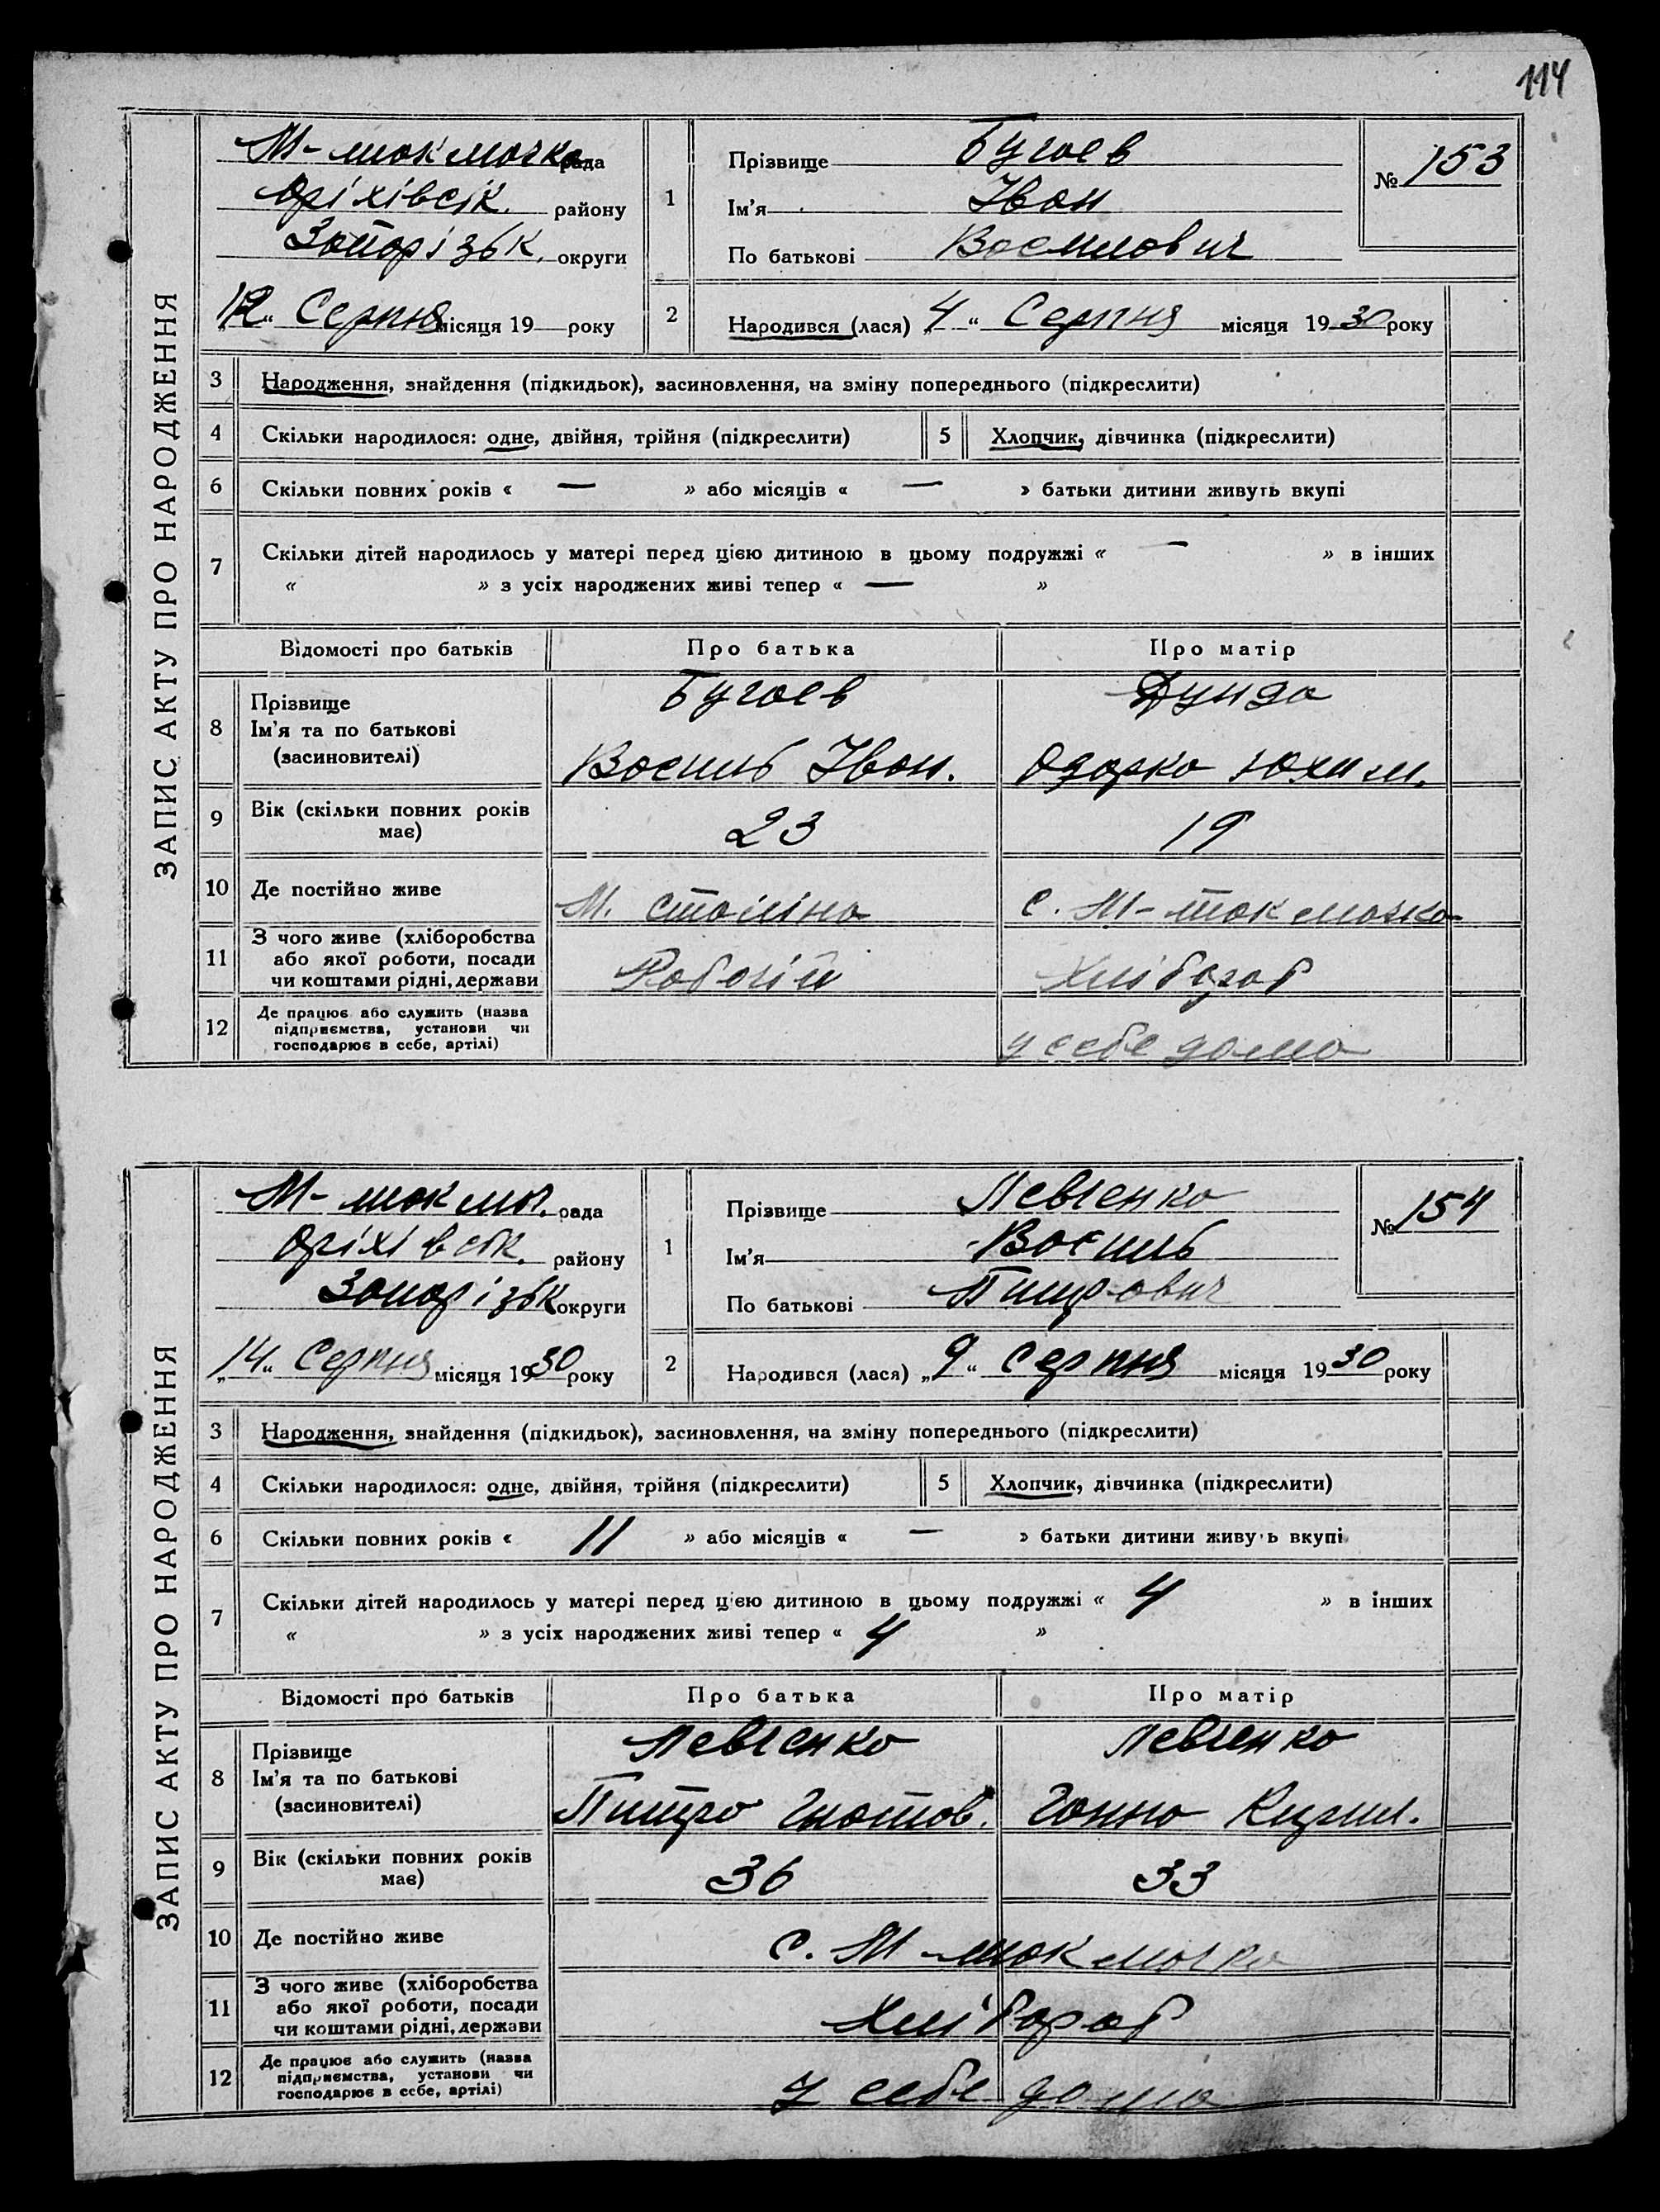 114
ЗАПИС АКТУ ПРО НАРОДЖЕННЯ
М-токмачка рада
Оріхівськ. району
Запорізьк. округи
„12“ Серпня місяця 19 року
1
Прізвище Бугаев
Ім'я Іван
По батькові Василович
№ 153
2
Народився (лася) „4“ Серпня місяця 1930 року
3 Народження, знайдення (підкидьок), засиновлення, на зміну попереднього (підкреслити)
4 Скільки народилося: одне, двійня, трійня (підкреслити) 5 Хлопчик, дівчинка (підкреслити)
6 Скільки повних років « — » або місяців « — » батьки дитини живуть вкупі
7 Скільки дітей народилось у матері перед цією дитиною в цьому подружжі « — » в інших
« » з усіх народжених живі тепер « — »
Відомості про батьків Про батька Про матір
8 Прізвище
Ім'я та по батькові
(засиновителі)
Бугаев
Василь Іван.
Дунда
Одарка Юхим.
9 Вік (скільки повних років має) 23 19
10 Де постійно живе М. Сталіна С. М-токмачка
11 З чого живе (хліборобства
або якої роботи, посади
чи коштами рідні, держави
Робочій Хлібороб
12 Де працює або служить (назва
підприємства, установи чи
господарює в себе, артілі)
у себе дома
ЗАПИС АКТУ ПРО НАРОДЖЕННЯ
М-токмач. рада
Оріхівськ. району
Запорізьк округи
„14“ Серпня місяця 1930 року
1
Прізвище Левченко
Ім'я Василь
По батькові Питрович
№ 154
2
Народився (лася) „9“ Серпня місяця 1930 року
3 Народження, знайдення (підкидьок), засиновлення, на зміну попереднього (підкреслити)
4 Скільки народилося: одне, двійня, трійня (підкреслити) 5 Хлопчик, дівчинка (підкреслити)
6 Скільки повних років « 11 » або місяців « — » батьки дитини живуть вкупі
7 Скільки дітей народилось у матері перед цією дитиною в цьому подружжі « 4 » в інших
« » з усіх народжених живі тепер « 4 »
Відомості про батьків Про батька Про матір
8 Прізвище
Ім'я та по батькові
(засиновителі)
Левченко
Питро Гнатов.
Левченко
Ганна Кирил.
9 Вік (скільки повних років має) 36 33
10 Де постійно живе С. М-токмачка
11 З чого живе (хліборобства
або якої роботи, посади
чи коштами рідні, держави
Хлібороб
12 Де працює або служить (назва
підприємства, установи чи
господарює в себе, артілі)
У себе дома